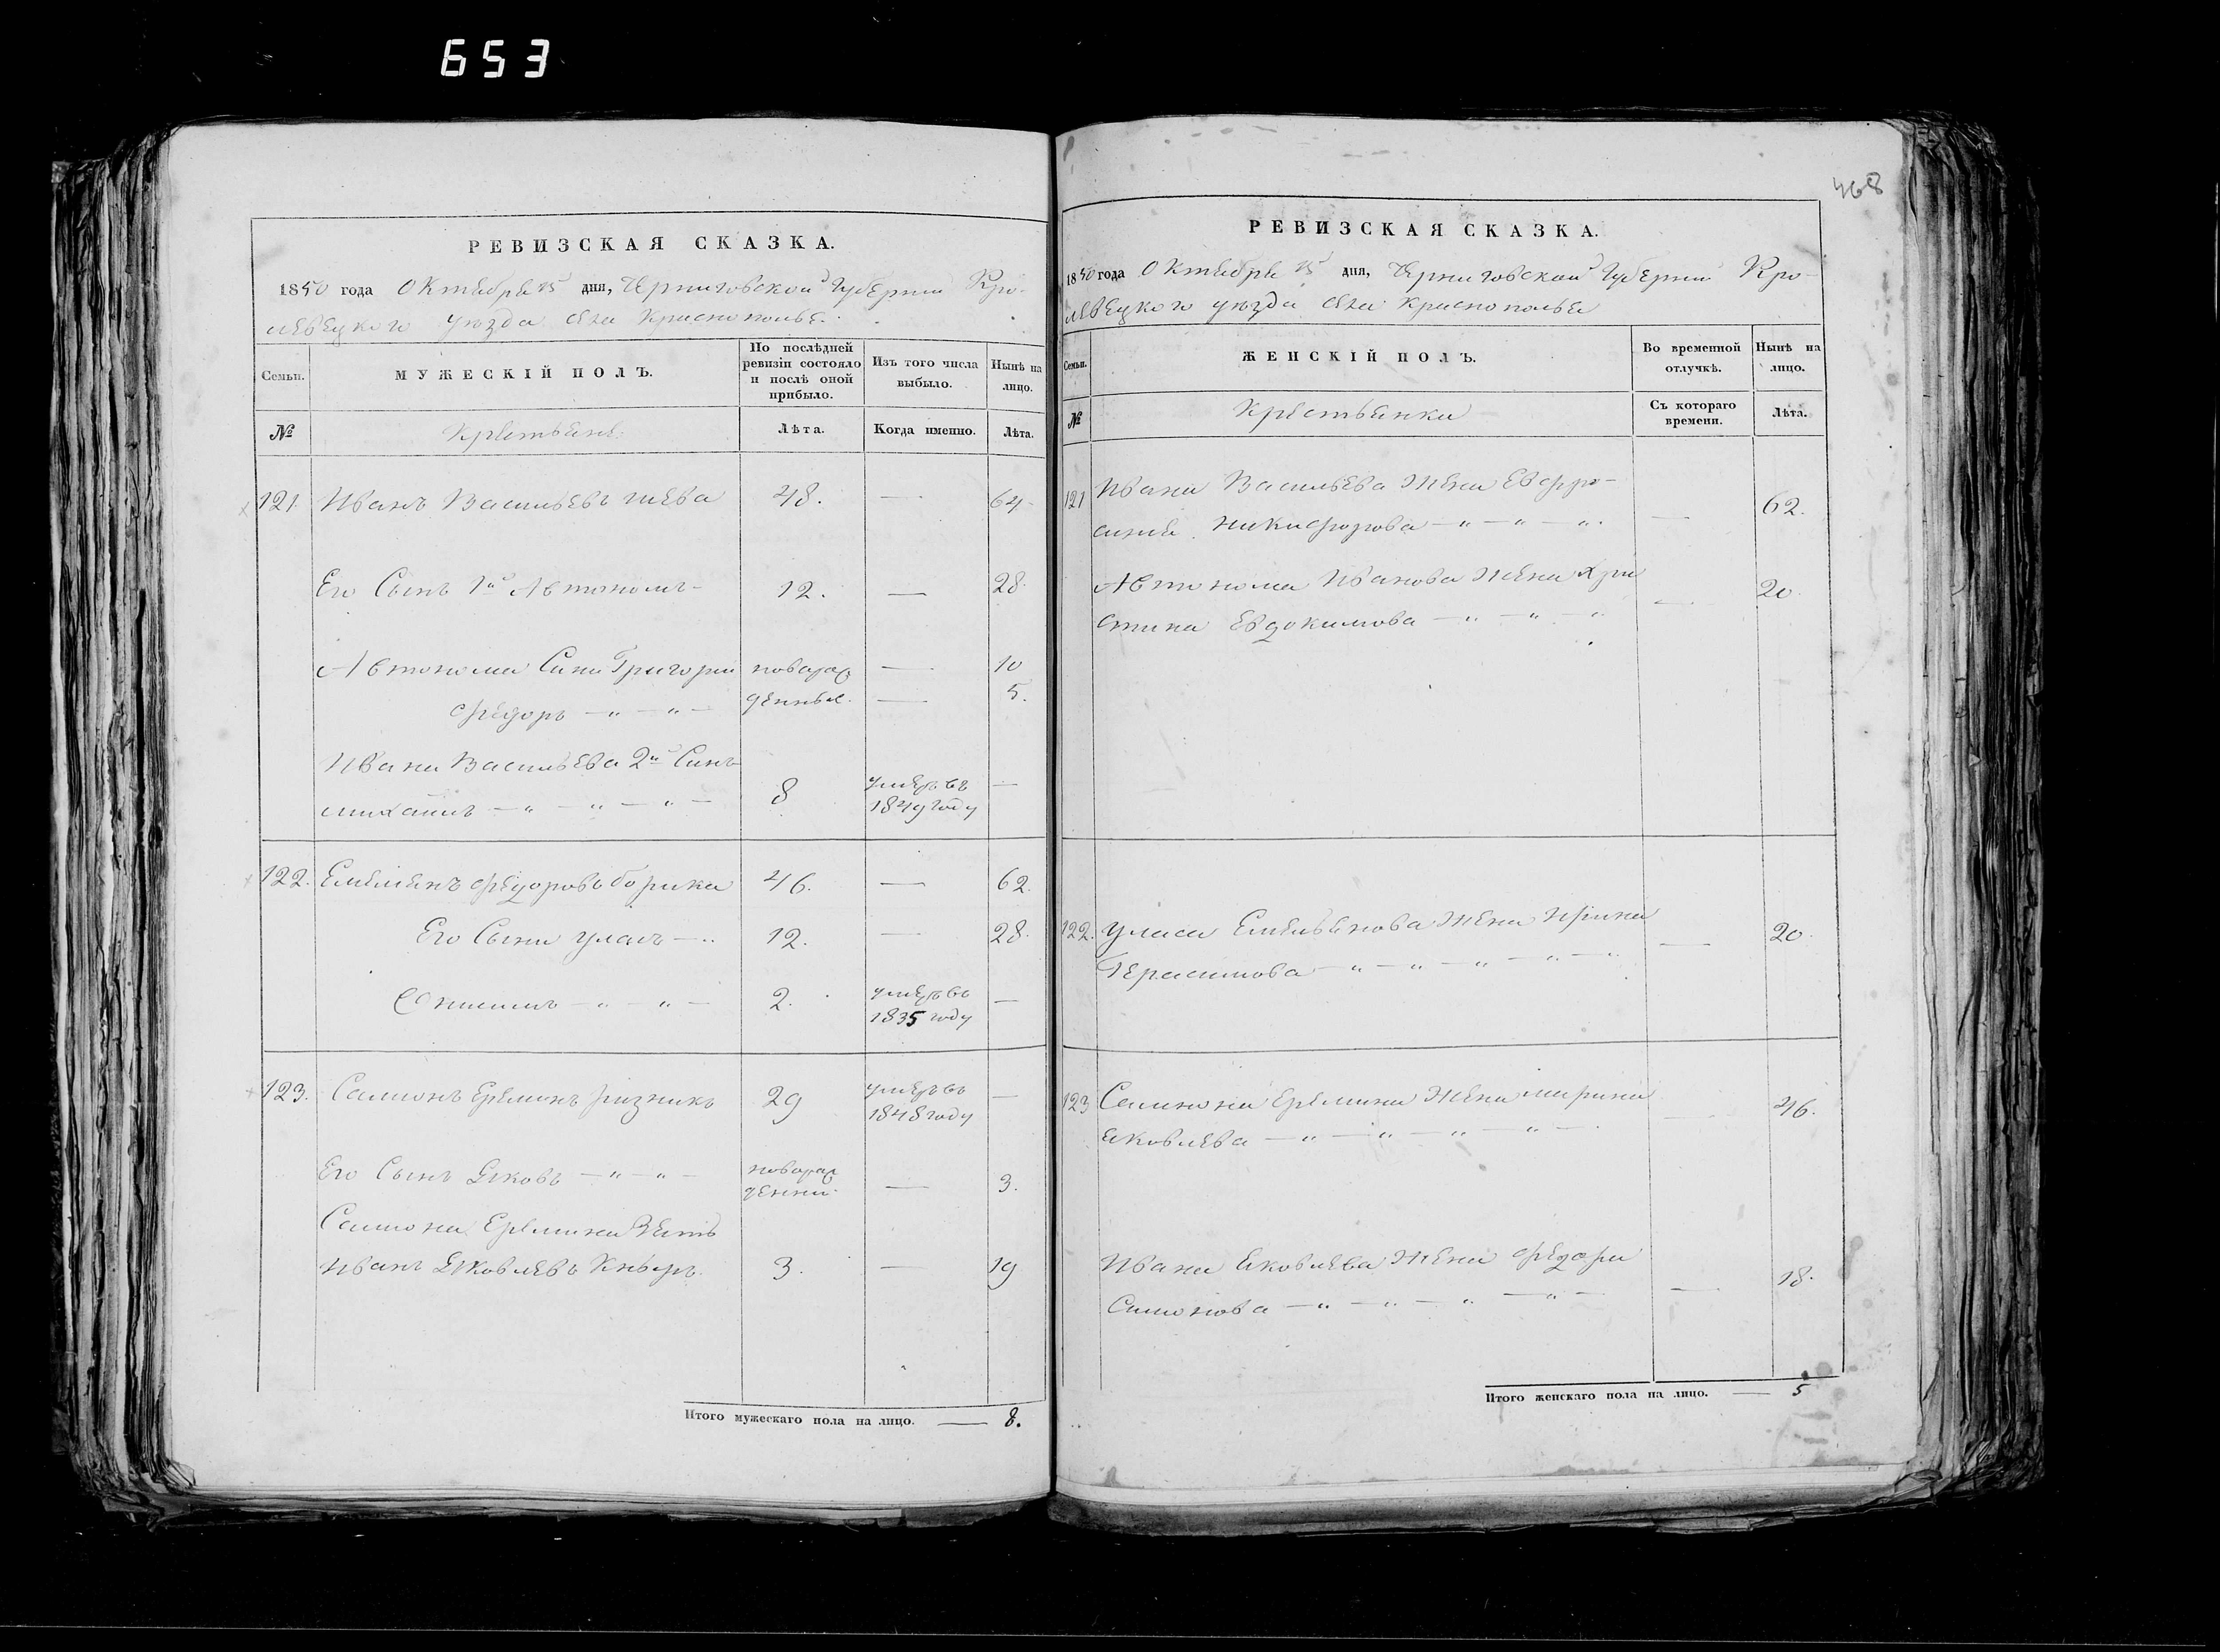 653
РЕВИЗСКАЯ СКАЗКА.
1850 года Октября 15 дня, Черниговской Губернии Кро-
левецкого уезда села Краснополье.
Семьи.
МУЖЕСКІЙ ПОЛЪ.
По послѣдней ревизіи состояло и послѣ оной прибыло.
Изъ того числа выбыло.
Нынѣ на лицо.
№
Крестьяне
Лѣта.
Когда именно.
Лѣта.
121. Иванъ Васильевъ 48. — 64
Его Сынъ 1й Автономъ 12. — 28.
Автонома Сини Григорій новорож — 10
Федоръ — " — " — денные. — 5.
Ивана Васильева 2й Синъ
михаилъ — " — " — " — 8 умеръ въ 1849 году —
122. Емельянъ Федоровъ борика 46. — 62.
Его Сыни уласъ — " 12. — 28.
Онисимъ — " — " — 2. умеръ въ 1835 году —
123. Самионъ Ереминъ ризникъ 29 умеръ въ 1848 году —
Его Сынъ Яковъ — " — " — новорож денни. — 3.
Самиона Еремина Зять
иванъ Яковлевъ 3. — 19
Итого мужескаго пола на лицо. — 8.
468
РЕВИЗСКАЯ СКАЗКА.
1850 года Октября 15 дня, Черниговской Губернии Кро-
левецкого уезда села Краснополья
Семьи.
ЖЕНСКІЙ ПОЛЪ.
Во временной отлучкѣ.
Нынѣ на лицо.
№
Крестьянки
Съ котораго времени.
Лѣта.
121 Ивана Васильева Жена Евфро-
синия Никифорова — " — " — ". — 62.
Автонома Иванова Жена Хри
стина Евдокимова — " — " — " — 20.
122. уласа Емельянова Жена Ирина
Герасимова — " — " — " — " — " — 20.
123 Самиона Еремина Жена марина
Яковлева — " — " — " — " — — 46.
Ивана Яковлева Жена Федора
Самионова — " — " — " — " — — 18.
Итого женскаго пола на лицо. — 5